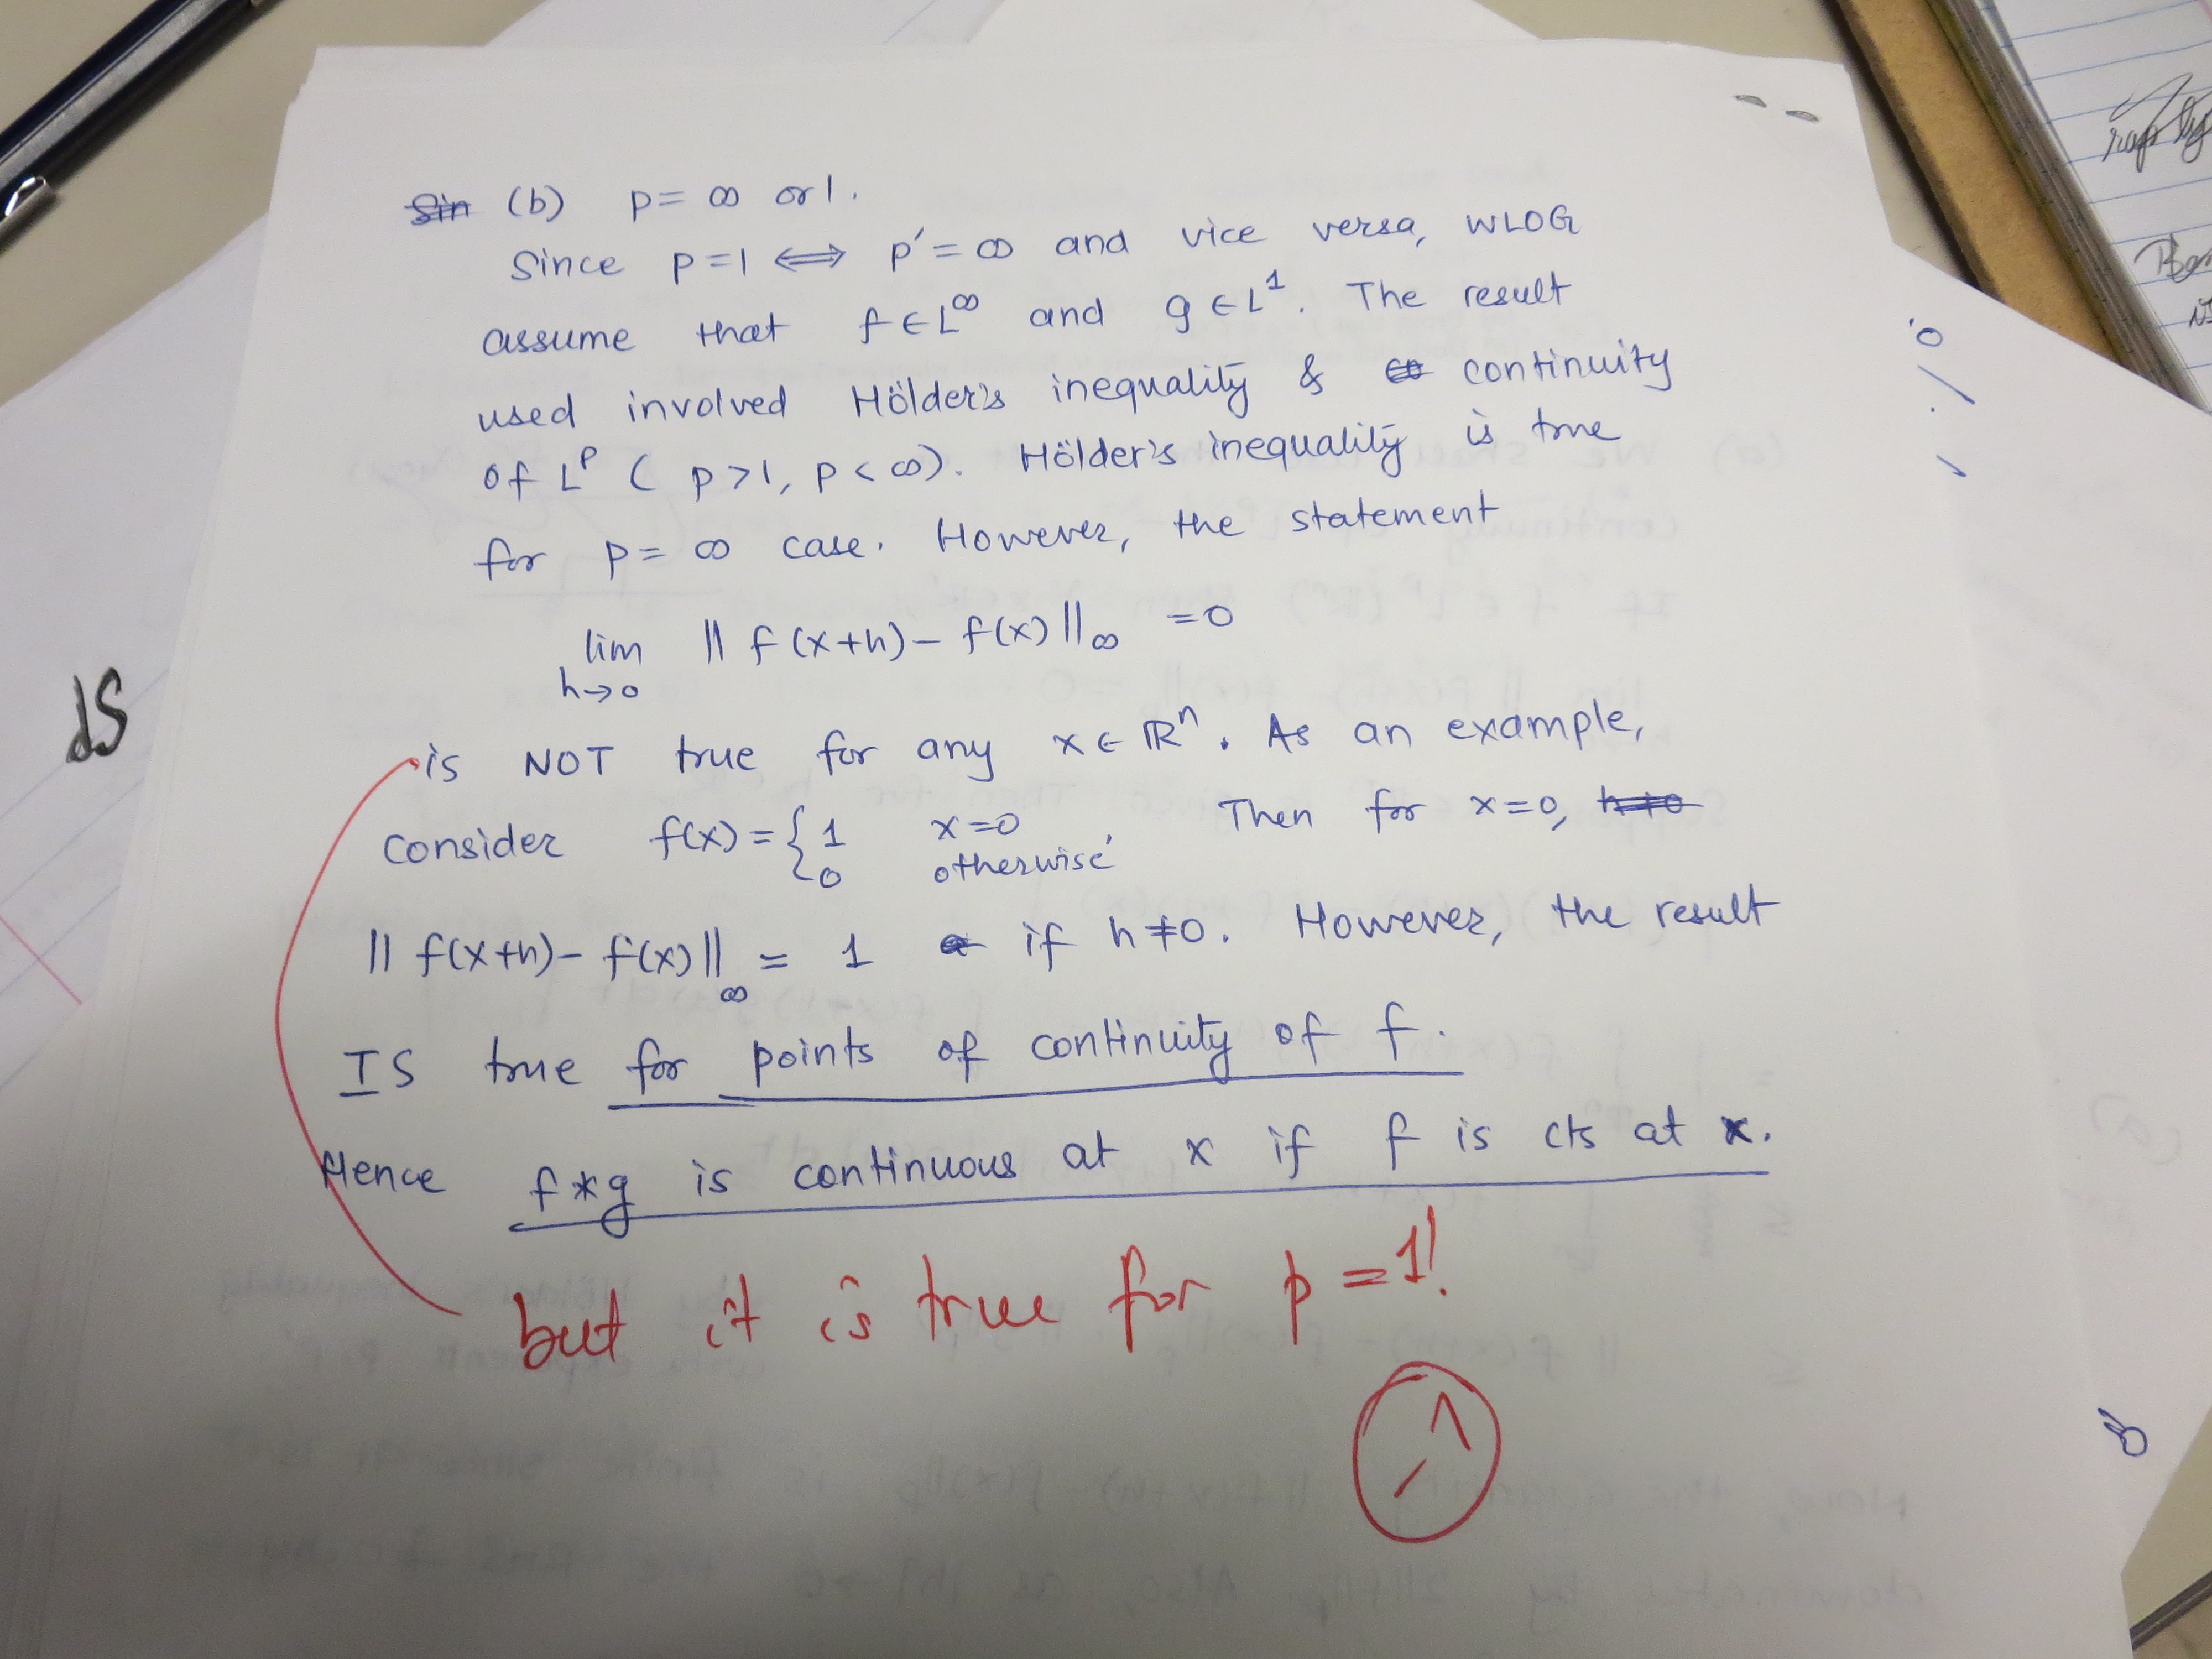 (b) p = ∞ or 1.
Since p = 1 ⟺ p' = ∞ and vice versa, WLOG
assume that f ∈ L^∞ and g ∈ L^1. The result
used involved Hölder's inequality & continuity
of L^p ( p > 1, p < ∞). Hölder's inequality is true
for p = ∞ case. However, the statement
lim h→0 || f(x+h) - f(x) ||_∞ = 0
is NOT true for any x ∈ ℝ^n. As an example,
consider f(x) = { 1 x=0
0 otherwise. Then for x=0,
|| f(x+h) - f(x) ||_∞ = 1 if h ≠ 0. However, the result
IS true for points of continuity of f.
Hence f*g is continuous at x if f is cts at x.
but it is true for p = 1!